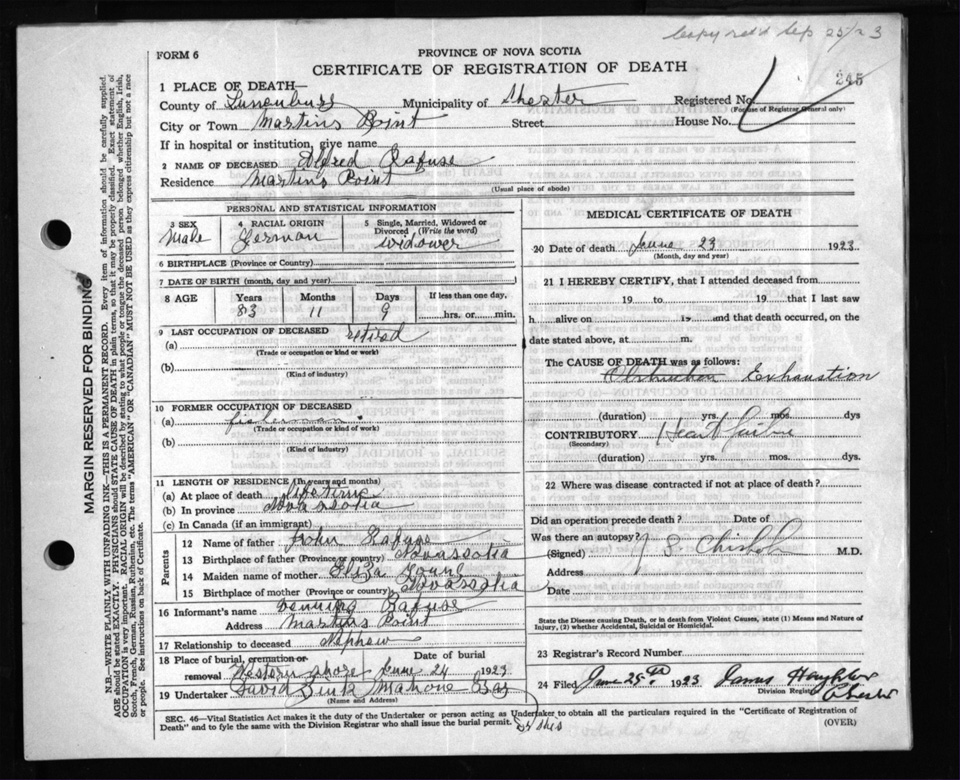 Sep 25/23
FORM 6
PROVINCE OF NOVA SCOTIA
CERTIFICATE OF REGISTRATION OF DEATH
245
1 PLACE OF DEATH—
County of Lunenburg Municipality of Chester Registered No.
(For use of Registrar General only)
City or Town Martins Point Street House No.
If in hospital or institution, give name
2 NAME OF DECEASED Alfred Rafuse
Residence Martins Point
(Usual place of abode)
PERSONAL AND STATISTICAL INFORMATION
3 SEX Male
4 RACIAL ORIGIN German
5 Single, Married, Widowed or Divorced (Write the word) widower
6 BIRTHPLACE (Province or Country)
7 DATE OF BIRTH (month, day and year)
8 AGE Years 83 Months 11 Days 9 If less than one day, hrs. or min.
9 LAST OCCUPATION OF DECEASED
(a) retired
(Trade or occupation or kind or work)
(b)
(Kind of industry)
10 FORMER OCCUPATION OF DECEASED
(a) fisherman
(Trade or occupation or kind of work)
(b)
(Kind of industry)
11 LENGTH OF RESIDENCE (In years and months)
(a) At place of death lifetime
(b) In province Novascotia
(c) In Canada (if an immigrant)
Parents
12 Name of father John Rafuse
13 Birthplace of father (Province or country) Novascotia
14 Maiden name of mother Eliza
15 Birthplace of mother (Province or country) Novascotia
16 Informant's name Rafuse
Address Martins Point
17 Relationship to deceased Nephew
18 Place of burial, cremation or removal Western Shore Date of burial June 24 1923
19 Undertaker David Mahone Bay
(Name and Address)
MEDICAL CERTIFICATE OF DEATH
20 Date of death June 23 1923
(Month, day and year)
21 I HEREBY CERTIFY, that I attended deceased from
19 to 19 that I last saw
h alive on 19 and that death occurred, on
date stated above, at m.
The CAUSE OF DEATH was as follows:
Exhaustion
(duration) yrs. mos dys
CONTRIBUTORY Heart failure
(Secondary)
(duration) yrs. mos. dys.
22 Where was disease contracted if not at place of death?
Did an operation precede death? Date of
Was there an autopsy?
(Signed) J S Chisholm M.D.
Address
Date
State the Disease causing Death, or in death from Violent Causes, state (1) Means and Nature of
Injury, (2) whether Accidental, Suicidal or Homicidal.
23 Registrar's Record Number
24 Filed June 25th 1923 James
Division Registrar
Chester
SEC. 46—Vital Statistics Act makes it the duty of the Undertaker or person acting as Undertaker to obtain all the particulars required in the "Certificate of Registration of
Death" and to fyle the same with the Division Registrar who shall issue the burial permit.
(OVER)
MARGIN RESERVED FOR BINDING
N.B.—WRITE PLAINLY WITH UNFADING INK—THIS IS A PERMANENT RECORD. Every item of information should be carefully supplied.
AGE should be stated EXACTLY. PHYSICIANS should STATE CAUSE OF DEATH in plain terms, so that it may be properly classified. Exact statement of
OCCUPATION is very important. RACIAL ORIGIN will be described by stating to what people or tongue the deceased person belonged whether English, Irish,
Scotch, French, German, Russian, Ruthenian, etc. The terms "AMERICAN" OR "CANADIAN" MUST NOT BE USED as they express citizenship but not a race
or people. See instructions on back of Certificate.